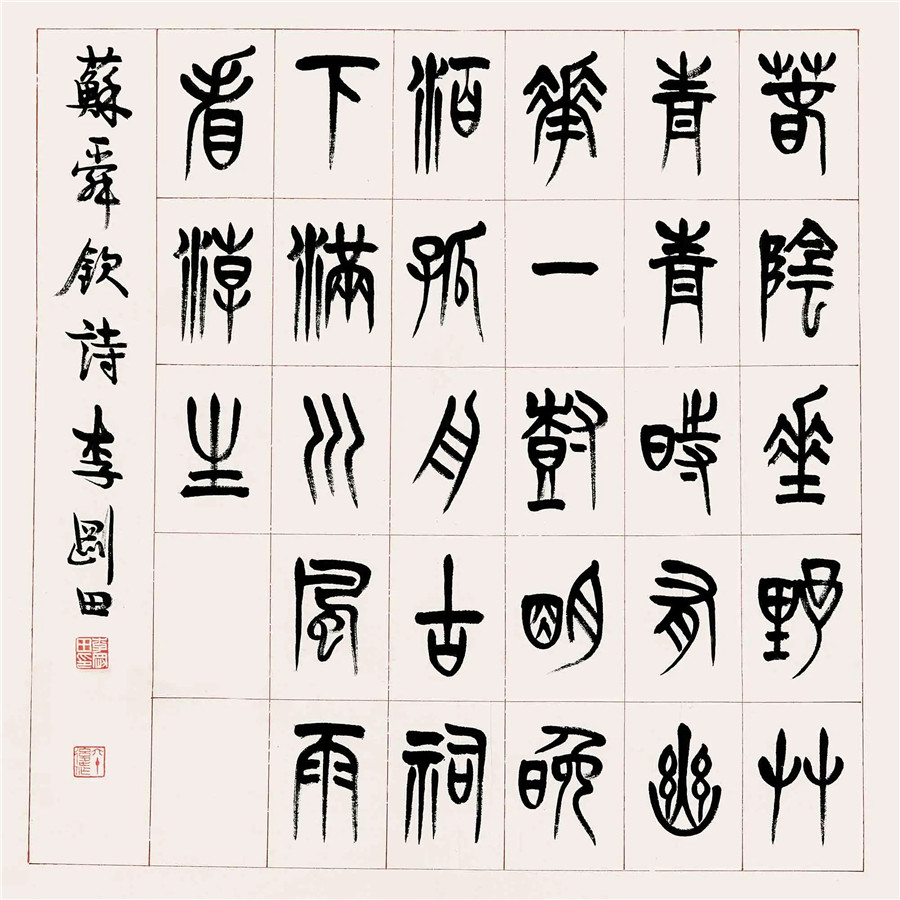 春陰垂野艸
青青時有幽
華一樹明晚
泊孤舟古祠
下滿川風雨
看潮生
蘇舜欽詩李剛田